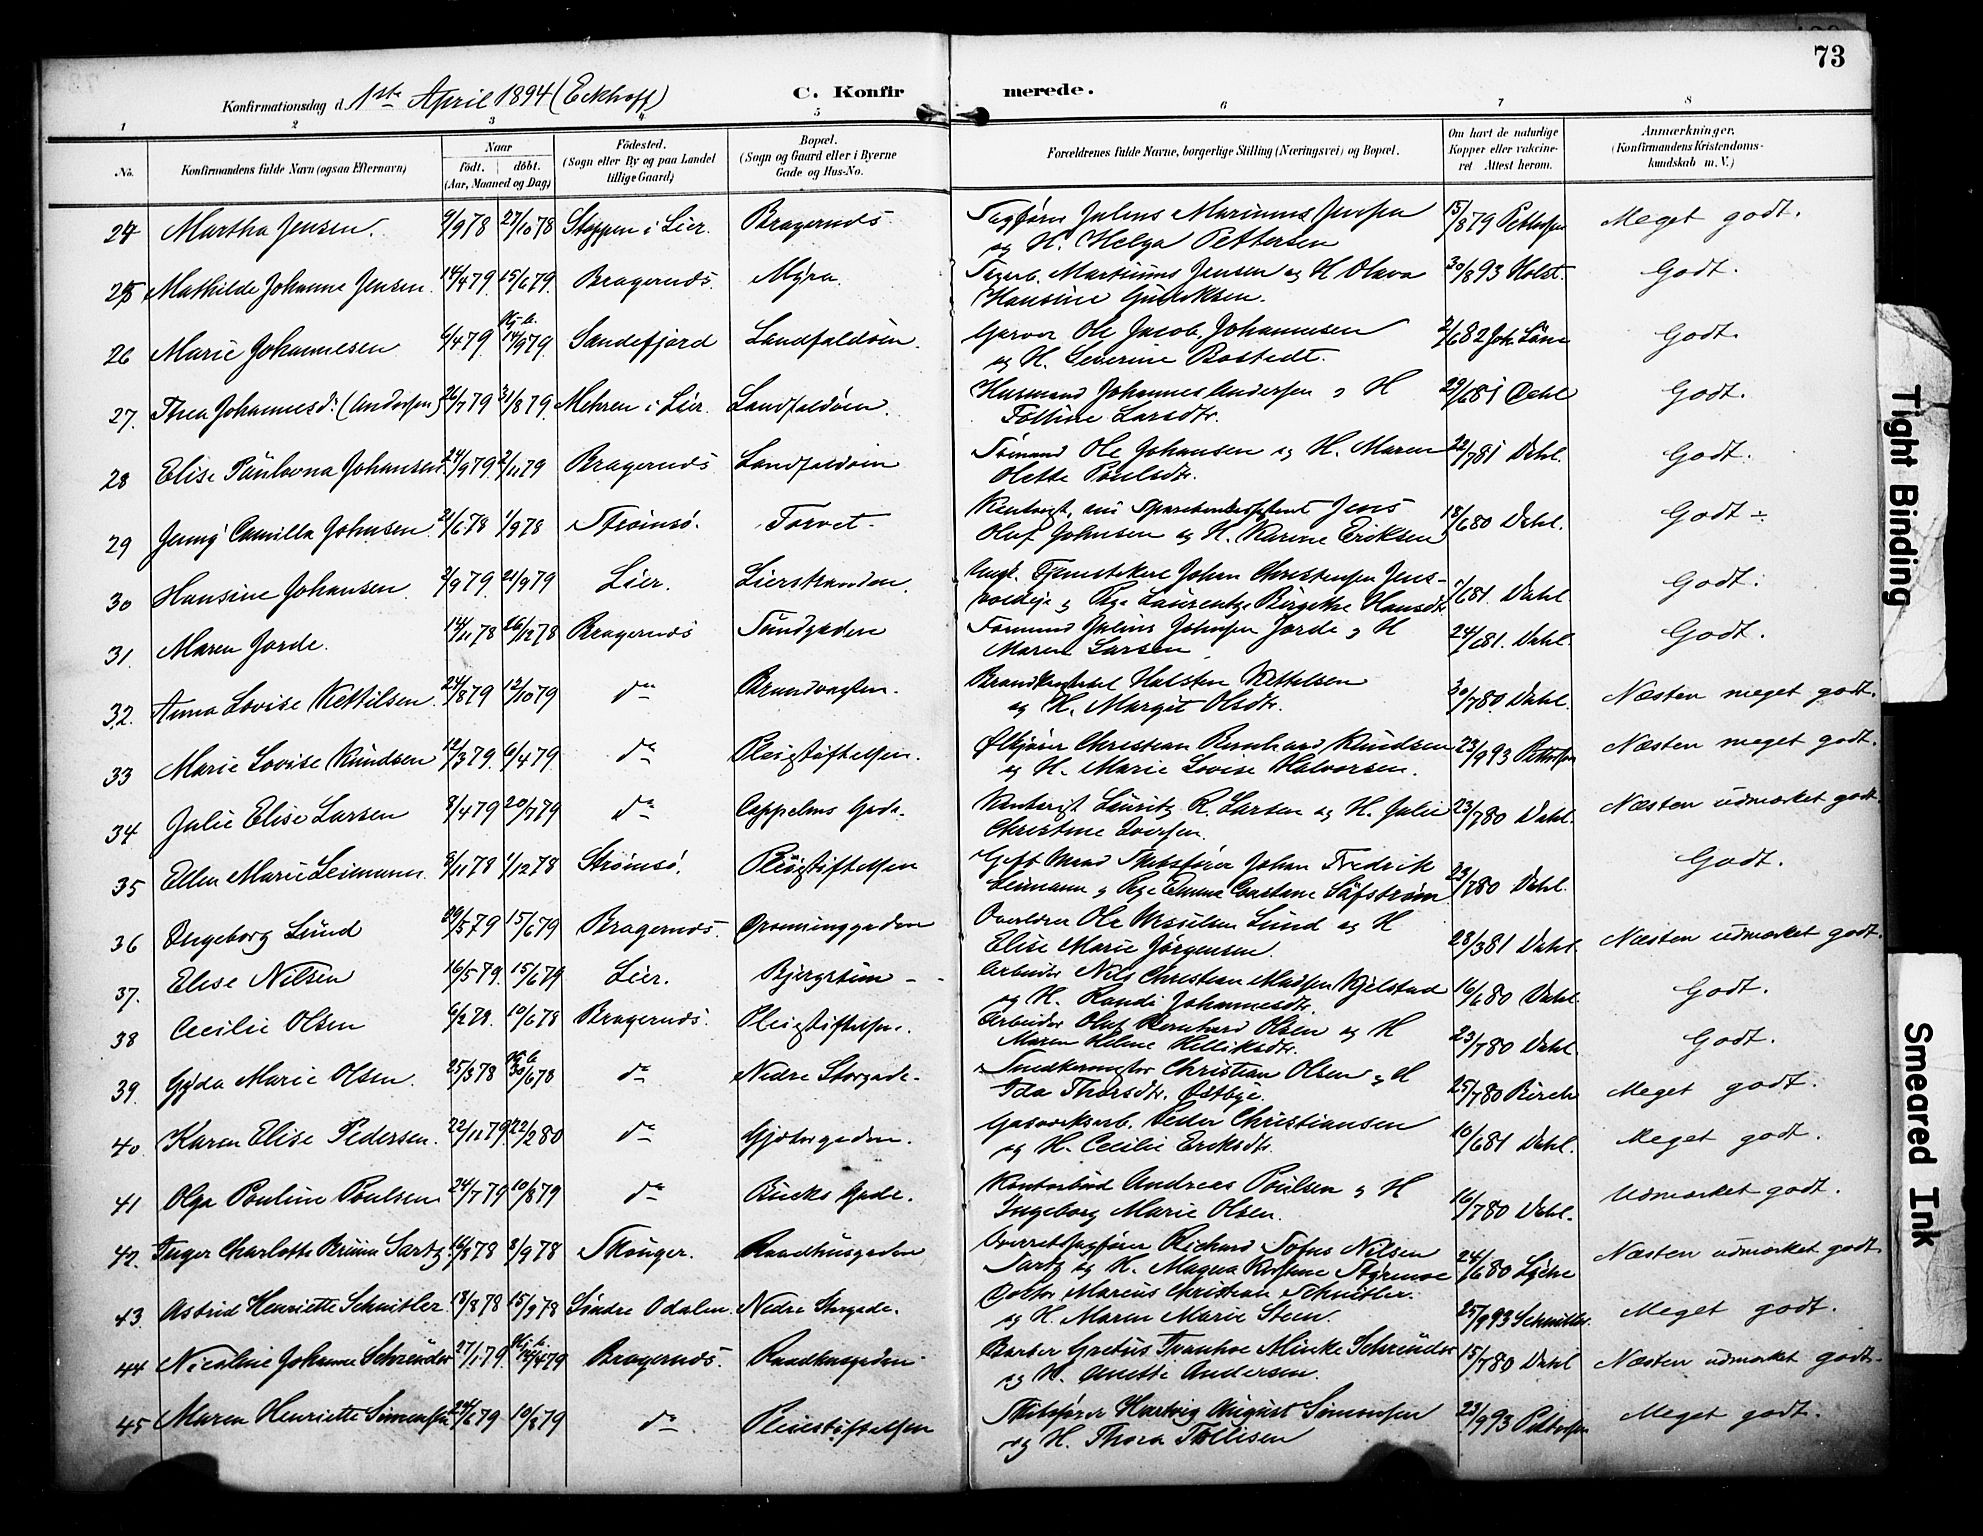 73
Konfirmationsdag d. 1ste April 1894 (Eckhoff) C. Konfirmerede.
1 2 3 4 5 6 7 8
No. Konfirmandens fulde Navn (ogsaa Efternavn) Naar født. døbt. (Aar, Maaned og Dag) Fødested. (Sogn eller By og paa Landet tillige Gaard) Bopæl. (Sogn og Gaard eller i Byerne Gade og Hus-No. Forældrenes fulde Navne, borgerlige Stilling (Næringsvei) og Bopæl. Om havt de naturlige Kopper eller vaccineret Attest herom. Anmærkninger, (Konfirmandens Kristendomskundskab m. V.)
24 Martha Jensen. 9/9 78 27/10 78 Stoppen i Lier. Bragernæs Julius Marinius Jensen
og H. Helga Pettersen 15/8 79 Pettersen Meget godt.
25 Mathilde Johanne Jensen 14/4 79 15/6 79. Bragernæs. Myra. Martinius Jensen og H Olava
Hansine Gulliksen. 30/8 93 Holst. Godt.
26 Marie Johannesen 6/4 79 14/9 79. Sandefjord Landfaldøien. Garver Ole Jacob Johannesen
og H. Severine Bostedt. 2/6 82 Godt.
27. Thea Johannesd: (Andersen) 26/7 79 31/8 79. Mehren i Lier. Landfaldøien. Husmand Johannes Andersen og H
Larsdtr. 29/6 81 Dahl Godt.
28 Elise Paulovna Johansen 24/9 79. 2/11 79 Bragernæs Landfaldøien Tømmd Ole Johansen og H. Maren
Olette Poulsdtr. 22/7 81 Dahl. Godt.
29 Jenny Camilla Johnsen 21/6 78 1/9 78 Strømsø. Torvet. Jens
Oluf Johnsen og H. Karine Eriksen 18/6 80 Dahl. Godt ÷
30 Hansine Johansen 2/9 79 21/9 79 Lier. Lierstranden. Ungk. Johan Christensen
og Pige Laurentze Birgithe Hansdtr 1/6 81. Dahl Godt.
31. Maren Jorde. 14/11 78 26/12 78 Bragernæs Sundgaden Formand Julius Johnsen Jorde og H
Maren Larsen 24/6 81. Dahl. Godt.
32. Anna Lovise Kettilsen. 24/8 79 12/10 79 do Brandvagten. Halsten Kettelsen
og H. Margit Olsdtr. 30/7 80. Dahl. Næsten meget godt.
33 Marie Lovise Knudsen 12/3 79. 6/4 79. do Pleiestiftelsen. Christian Bernhard Knudsen
og H. Marie Lovise Halvorsen. 23/9 93 Pettersen Næsten meget godt.
34 Julie Elise Larsen 3/4 79 20/7 79 do Cappelens Gade. Lauritz R. Larsen og H. Julie
Christine Iversen. 23/7 80 Dahl. Næsten udmærket godt.
35 Ellen Marie Leimann. 3/11 78 1/12 78 Strømsø. Pleiestiftelsen Gift Mand Skibsfører Johan Fredrik
Leimann og Pige Emma Constane Säfström 23/7 80 Dahl. Godt.
36 Ingeborg Lund 29/5 79 15/6 79 Bragernæs. Dronninggaden Overlærer Ole Lund og H
Elise Marie Jørgensen. 28/3 81 Dahl. Næsten udmærket godt.
37. Elise Nilsen 16/5 79. 15/6 79 Lier. Arbeider Nils Christian Madsen Kjelstad
og H. Randi Johannesdtr. 16/6 80 Dahl Godt.
38 Cecilie Olsen 6/2 78. 10/6 78 Bragernæs. Pleiestiftelsen. Arbeider Oluf Bernhard Olsen og H
Maren Helene 23/7 80 Dahl. Godt.
39. Gyda Marie Olsen. 25/3 78 30/6 78 do Nedre Storgade. Snedkermester Christian Olsen og H
Ida Thorsdtr. Østbye. 25/7 80 Birch Meget godt.
40. Karen Elise Pedersen. 22/11 79 22/2 80 do Gjetergaden. Gasværksarb. Peder Christiansen
og H. Cecilie Eriksdtr. 10/6 81 Dahl. Meget godt.
41 Olga Pauline Poulsen 24/7 79 10/8 79 do Bucks Gade. Kontorbud Andreas Poulsen og H
Ingeborg Marie Olsen. 16/7 80 Dahl. Udmærket godt.
42. Inger Charlotte Bruun Sartz 8 78 3/9 78 Skouger. Raadhusgaden Overretssagfører Richard Tofus Nilsen
Sartz og H. Magna 24/6 80 Lyche Næsten udmærket godt.
43. Astrid Henriette Schnitler. 18/8 78 15/9 78 Søndre Odalen. Nedre Storgade. Doktor Marius Christian Schnitler.
og H. Maren Marie Steen. 25/9 93 Schnitler. Meget godt.
44 Nicoline Johanne Schreuder 27/1 79. 14/4 79 Bragernæs. Raadhusgaden Barber Ivanhoe Minke Schreuder
og H. Anette Andersen. 15/7 80 Dahl Næsten udmærket godt.
45 Maren Henriette Simensen 24/6 79 10/8 79 do Pleiestiftelsen Skibsfører Hartvig August Simonsen
og H. Thora Tollisen 23/9 93 Pettersen Meget godt.
Tight Binding
Smeared Ink